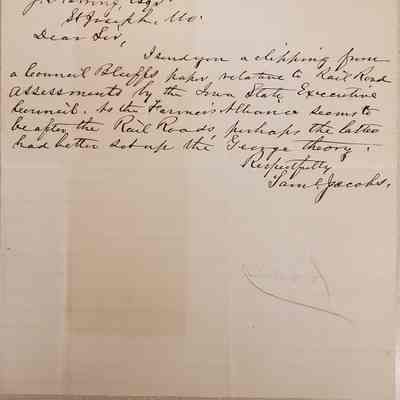 Esqr
St Joseph, Mo.
Dear Sir,
I send you a clipping from
a Council Bluffs paper, relative to Rail Road
assessments by the Iowa State Executive
Council. As the Farmers Alliance seems to
be after the Rail Roads, perhaps the latter
had better set up the George theory.
Respectfully
Saml Jacobs.